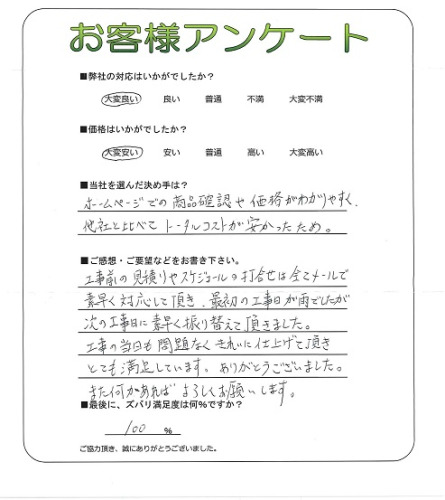 お客様アンケート
■弊社の対応はいかがでしたか?
大変良い 良い 普通 不満 大変不満
■価格はいかがでしたか?
大変安い 安い 普通 高い 大変高い
■当社を選んだ決め手は?
ホームページでの商品確認や価格がわかりやすく、
他社と比べて トータルコストが安かったため。
■ご感想・ご要望などをお書き下さい。
工事前の見積りやスケジュールの打合せは全てメールで
素早く対応して頂き、最初の工事日が雨でしたが
次の工事日に素早く振り替えて頂きました。
工事の当日も問題なくきれいに仕上げて頂き
とても満足しています。ありがとうございました。
また何かあれば よろしくお願いします。
■最後に、ズバリ満足度は何%ですか?
100 %
ご協力頂き、誠にありがとうございました。